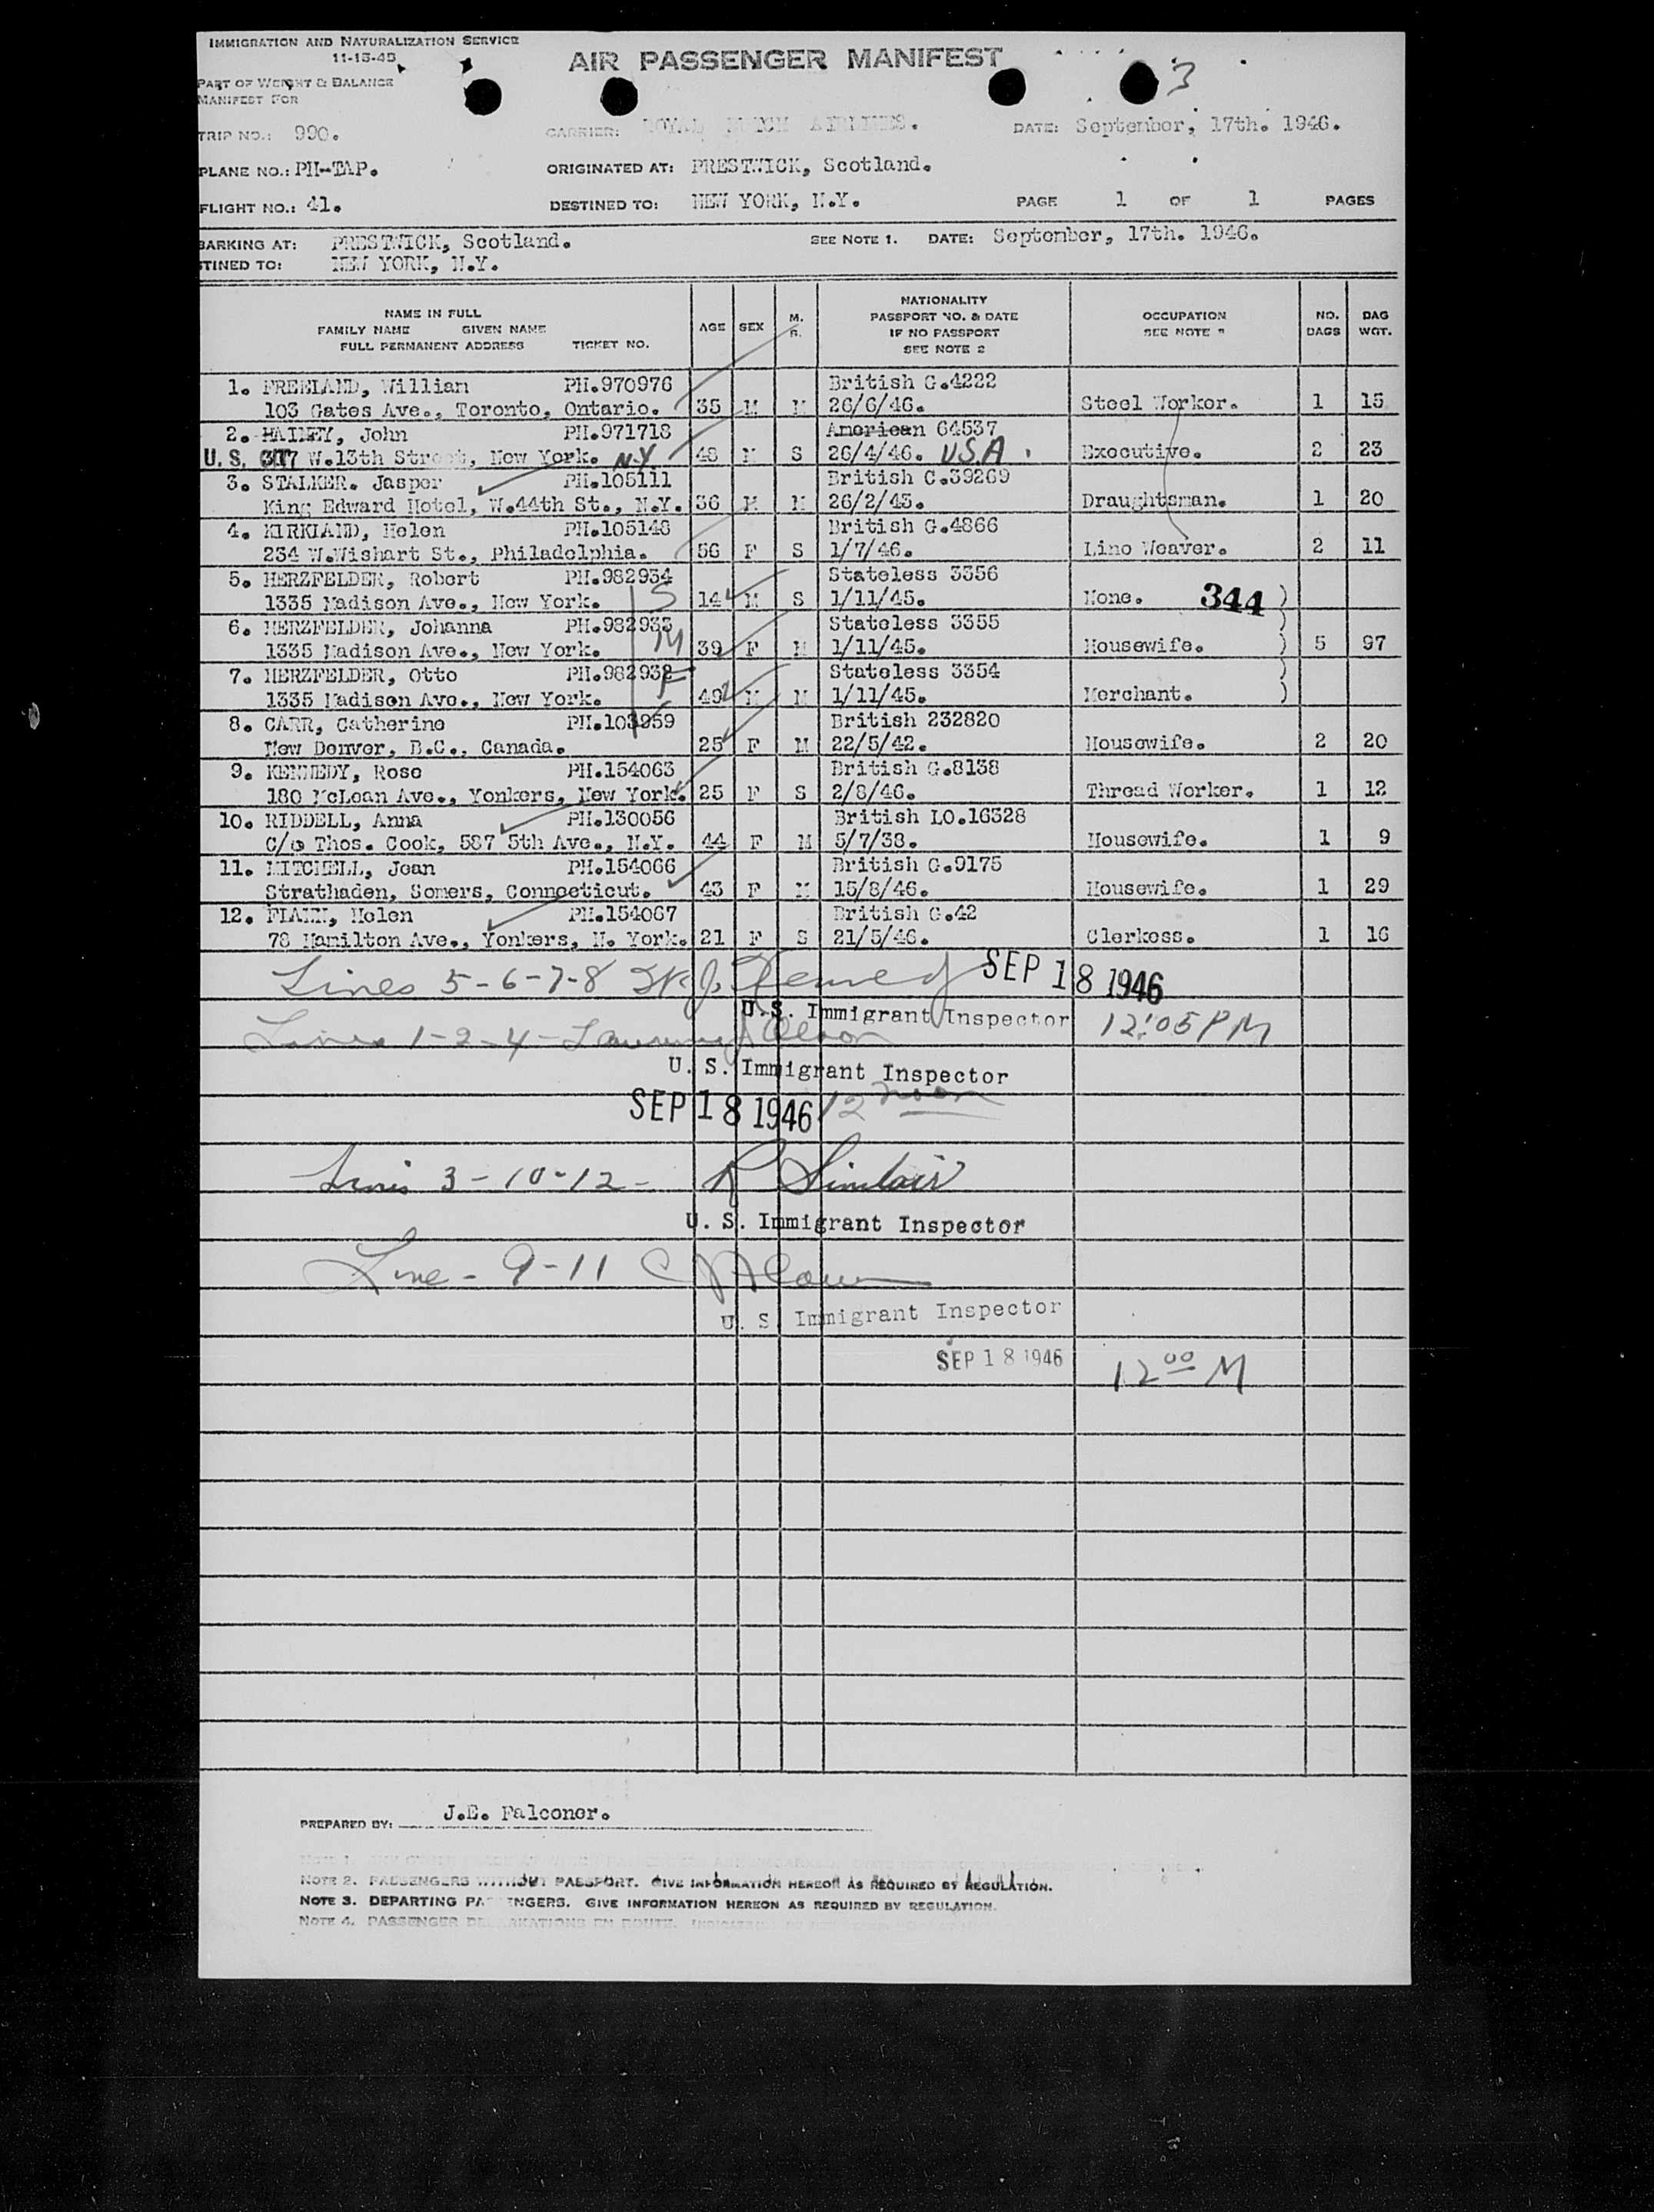 IMMIGRATION AND NATURALIZATION SERVICE
11-15-45
AIR PASSENGER MANIFEST
3
PART OF WEIGHT & BALANCE
MANIFEST FOR
TRIP NO.: 990. CARRIER: ROYAL DUTCH AIRLINES. DATE: September, 17th. 1946.
PLANE NO.: PH-TAP. ORIGINATED AT: PRESTWICK, Scotland.
FLIGHT NO.: 41. DESTINED TO: NEW YORK, N.Y. PAGE 1 OF 1 PAGES
BARKING AT: PRESTWICK, Scotland. SEE NOTE 1. DATE: September, 17th. 1946.
TINED TO: NEW YORK, N.Y.
NAME IN FULL
FAMILY NAME GIVEN NAME
FULL PERMANENT ADDRESS TICKET NO.
AGE SEX M. S.
NATIONALITY
PASSPORT NO. & DATE
IF NO PASSPORT
SEE NOTE 2
OCCUPATION
SEE NOTE
NO. BAGS
BAG WGT.
1. FREELAND, Willian PH.970976 British G.4222
103 Gates Ave., Toronto, Ontario. 35 M M 26/6/46. Steel Worker. 1 15
2. HAILEY, John PH.971718 American 64537
U.S. 317 W.13th Street, New York. N.Y 48 M S 26/4/46. U.S.A. Executive. 2 23
3. STALKER. Jasper PH.105111 British C.39269
King Edward Hotel, W.44th St., N.Y. 36 M M 26/2/43. Draughtsman. 1 20
4. KIRKLAND, Helen PH.105148 British G.4866
234 W.Wishart St., Philadelphia. 56 F S 1/7/46. Lino Weaver. 2 11
5. HERZFELDER, Robert PH.982934 Stateless 3356
1335 Madison Ave., New York. S 14 M S 1/11/45. None. 344 )
6. HERZFELDER, Johanna PH.982933 Stateless 3355
1335 Madison Ave., New York. M 39 F M 1/11/45. Housewife. ) 5 97
7. HERZFELDER, Otto PH.982932 Stateless 3354
1335 Madison Ave., New York. F 49 M M 1/11/45. Merchant. )
8. CARR, Catherine PH.103959 British 232820
New Denver, B.C., Canada. 25 F M 22/5/42. Housewife. 2 20
9. KENNEDY, Rose PH.154063 British G.8138
180 McLean Ave., Yonkers, New York. 25 F S 2/8/46. Thread Worker. 1 12
10. RIDDELL, Anna PH.130056 British LO.16328
C/o Thos. Cook, 587 5th Ave., N.Y. 44 F M 5/7/38. Housewife. 1 9
11. MITCHELL, Jean PH.154066 British G.9175
Strathaden, Somers, Connecticut. 43 F M 15/8/46. Housewife. 1 29
12. FLANN, Helen PH.154067 British G.42
78 Hamilton Ave., Yonkers, N. York. 21 F S 21/5/46. Clerkess. 1 16
Lines 5-6-7-8 SEP 18 1946
U.S. Immigrant Inspector 12:05 PM
Lines 1-2-4-
U. S. Immigrant Inspector
SEP 18 1946 12 noon
Lines 3-10-12- R Sinclair
U. S. Immigrant Inspector
Line - 9-11
U. S Immigrant Inspector
SEP 18 1946 12 00 M
PREPARED BY: J.E. Falconer.
NOTE 2. PASSENGERS WITHOUT PASSPORT. GIVE INFORMATION HEREON AS REQUIRED BY REGULATION.
NOTE 3. DEPARTING PASSENGERS. GIVE INFORMATION HEREON AS REQUIRED BY REGULATION.
NOTE 4. PASSENGER EN ROUTE.